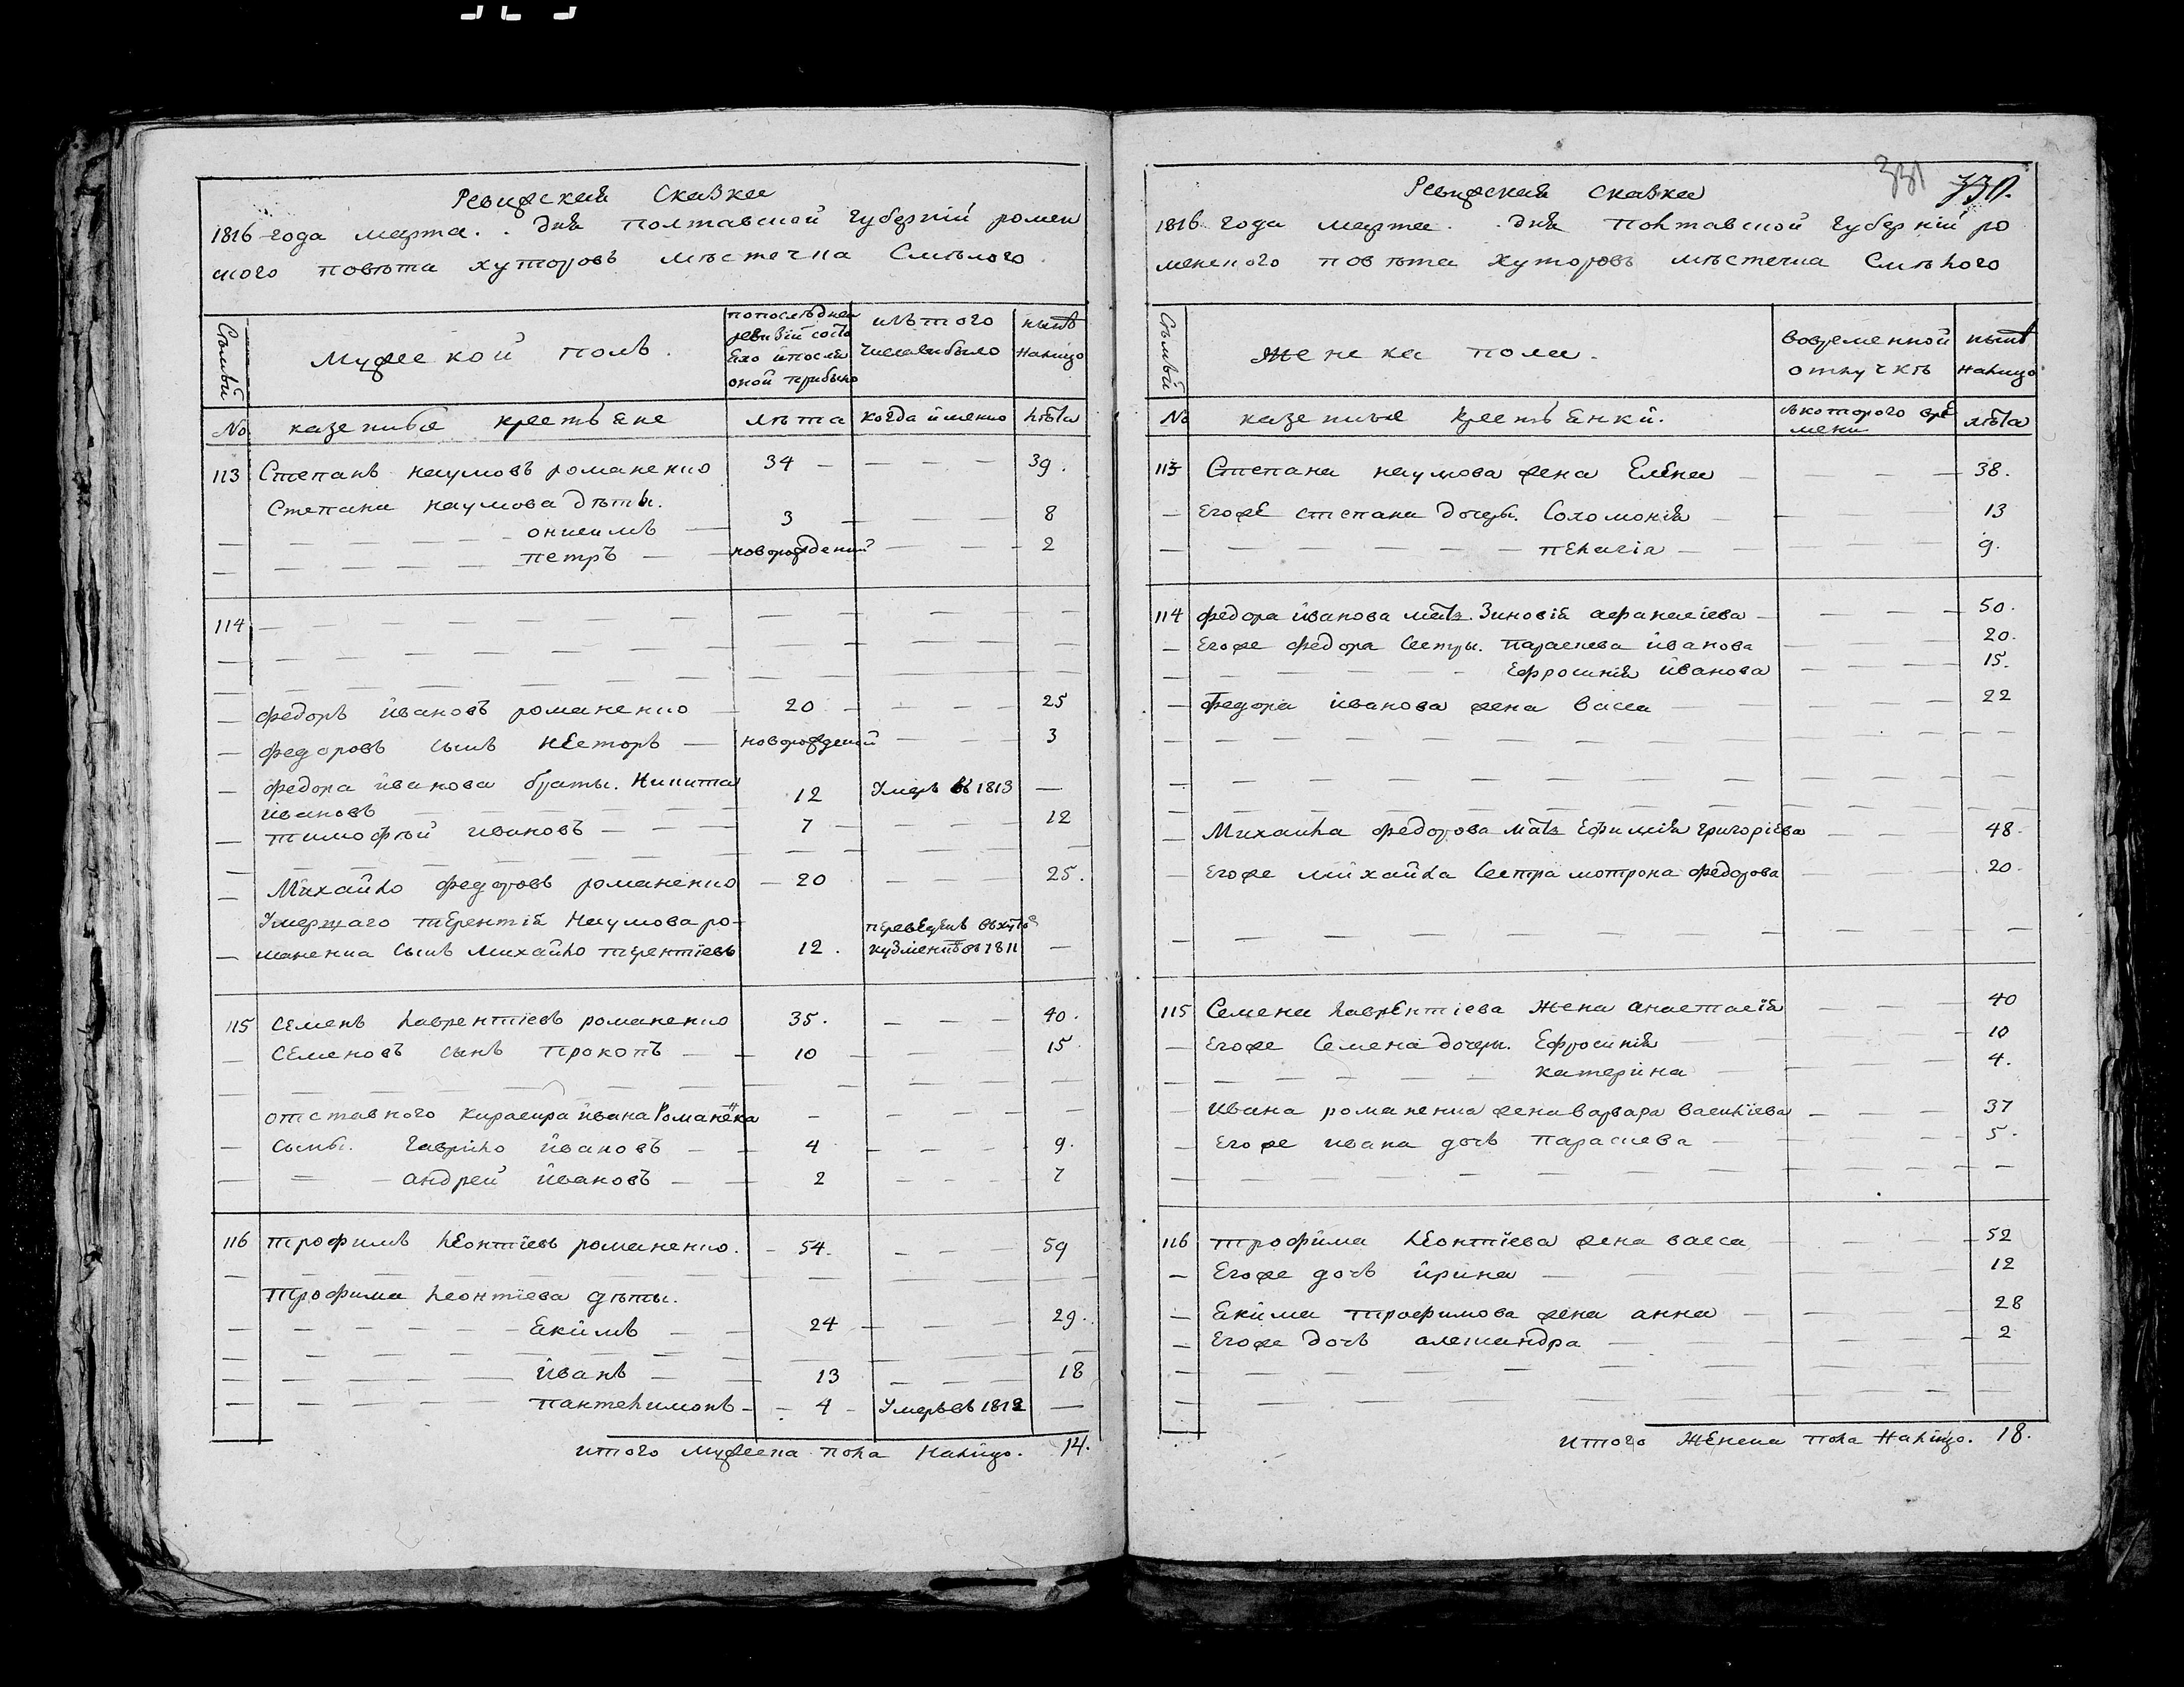 Ревижская Сказка
1816 года марта. . дня полтавской губернии ромен
ского повѣта хуторовъ мѣстечка Смѣлого
Семьи
Мужеской полъ.
попоследней
ревизии состо
яло и после
оной прибыло
изъ того
числа выбыло
нынѣ
налицо
№ казенные крестьяне лѣта когда именно лѣта
113 Степанъ наумовъ романенко 34 39.
Степана наумова дѣти.
онисимъ 3 8
петръ новорожденный 2
114
федоръ ивановъ романенко 20 25
федоровъ сынъ несторъ новорожденный 3
федора иванова братьи. Никита
ивановъ 12 Умеръ въ 1813
тимофѣй ивановъ 7 12
Михайло федоровъ романенко 20 25.
Умершаго терентия Наумова ро-
маненка сынъ михайло терентиевъ 12. переведенъ въ хуто
въ 1811
115 Семенъ лаврентиевъ романенко 35. 40.
Семеновъ сынъ прокопъ 10 15
отставного кирасира ивана Романенка
сыны. гаврило ивановъ 4 9.
андрей ивановъ 2 7
116 трофимъ леонтиевъ романенко. 54. 59
Трофима леонтиева дѣти.
Екимъ 24 29.
иванъ 13 18
пантелимонъ 4 Умеръ въ 1812
итого мужеска пола налицо. 14.
331 330.
Ревижская сказка
1816 года марта. . дня полтавской губернии ро
менского повѣта хуторовъ мѣстечка Смѣлого
Семьи
Женска пола.
вовременной
отлучкѣ
нынѣ
налицо
№ казенные крестьянки. съ которого вре
мени лѣта
113 Степана наумова жена Елена 38.
Егоже степана дочери. Соломония 13
пелагия 9.
114 федора иванова мать Зиновия афанасиева 50.
Егоже федора сестры. параскева иванова 20.
Ефросиния иванова 15.
Федора иванова жена васса 22
Михайла федорова мать Ефимия григориева 48.
Егоже михайла сестра мотрона федорова 20.
115 Семена лаврентиева жена анастасия 40
Егоже Семена дочери. Ефросиния 10
катерина 4.
Ивана романенка жена варвара василиева 37
Егоже ивана дочь параскева 5.
116 трофима леонтиева жена васса 52
Егоже дочь ирина 12
Екима трофимова жена анна 28
Егоже дочь александра 2
итого Женска пола налицо. 18.